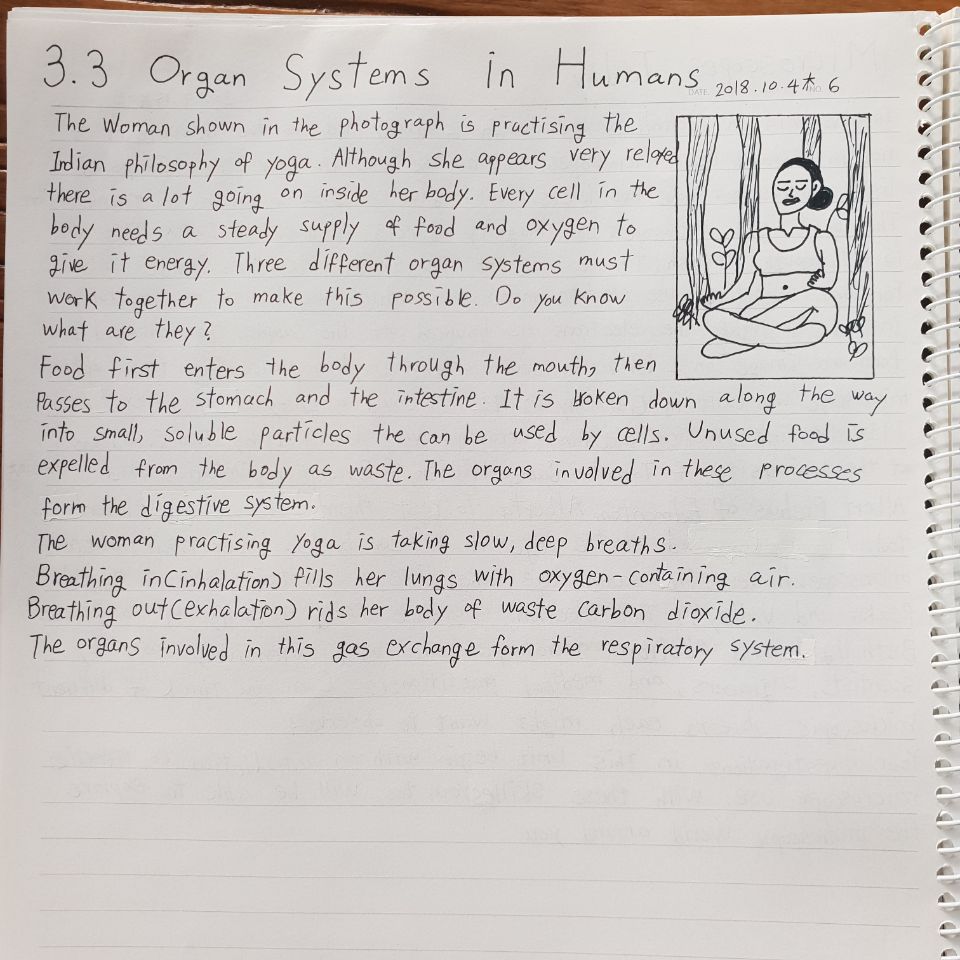 3.3 Organ Systems in Humans
DATE 2018.10.4木 NO. 6
The Woman shown in the photograph is practising the
Indian philosophy of yoga. Although she appears very relaxed
there is a lot going on inside her body. Every cell in the
body needs a steady supply of food and oxygen to
give it energy. Three different organ systems must
work together to make this possible. Do you know
what are they?
Food first enters the body through the mouth, then
Passes to the stomach and the intestine. It is broken down along the way
into small, soluble particles the can be used by cells. Unused food is
expelled from the body as waste. The organs involved in these processes
form the digestive system.
The woman practising Yoga is taking slow, deep breaths.
Breathing in(inhalation) fills her lungs with oxygen-containing air.
Breathing out(exhalation) rids her body of waste carbon dioxide.
The organs involved in this gas exchange form the respiratory system.